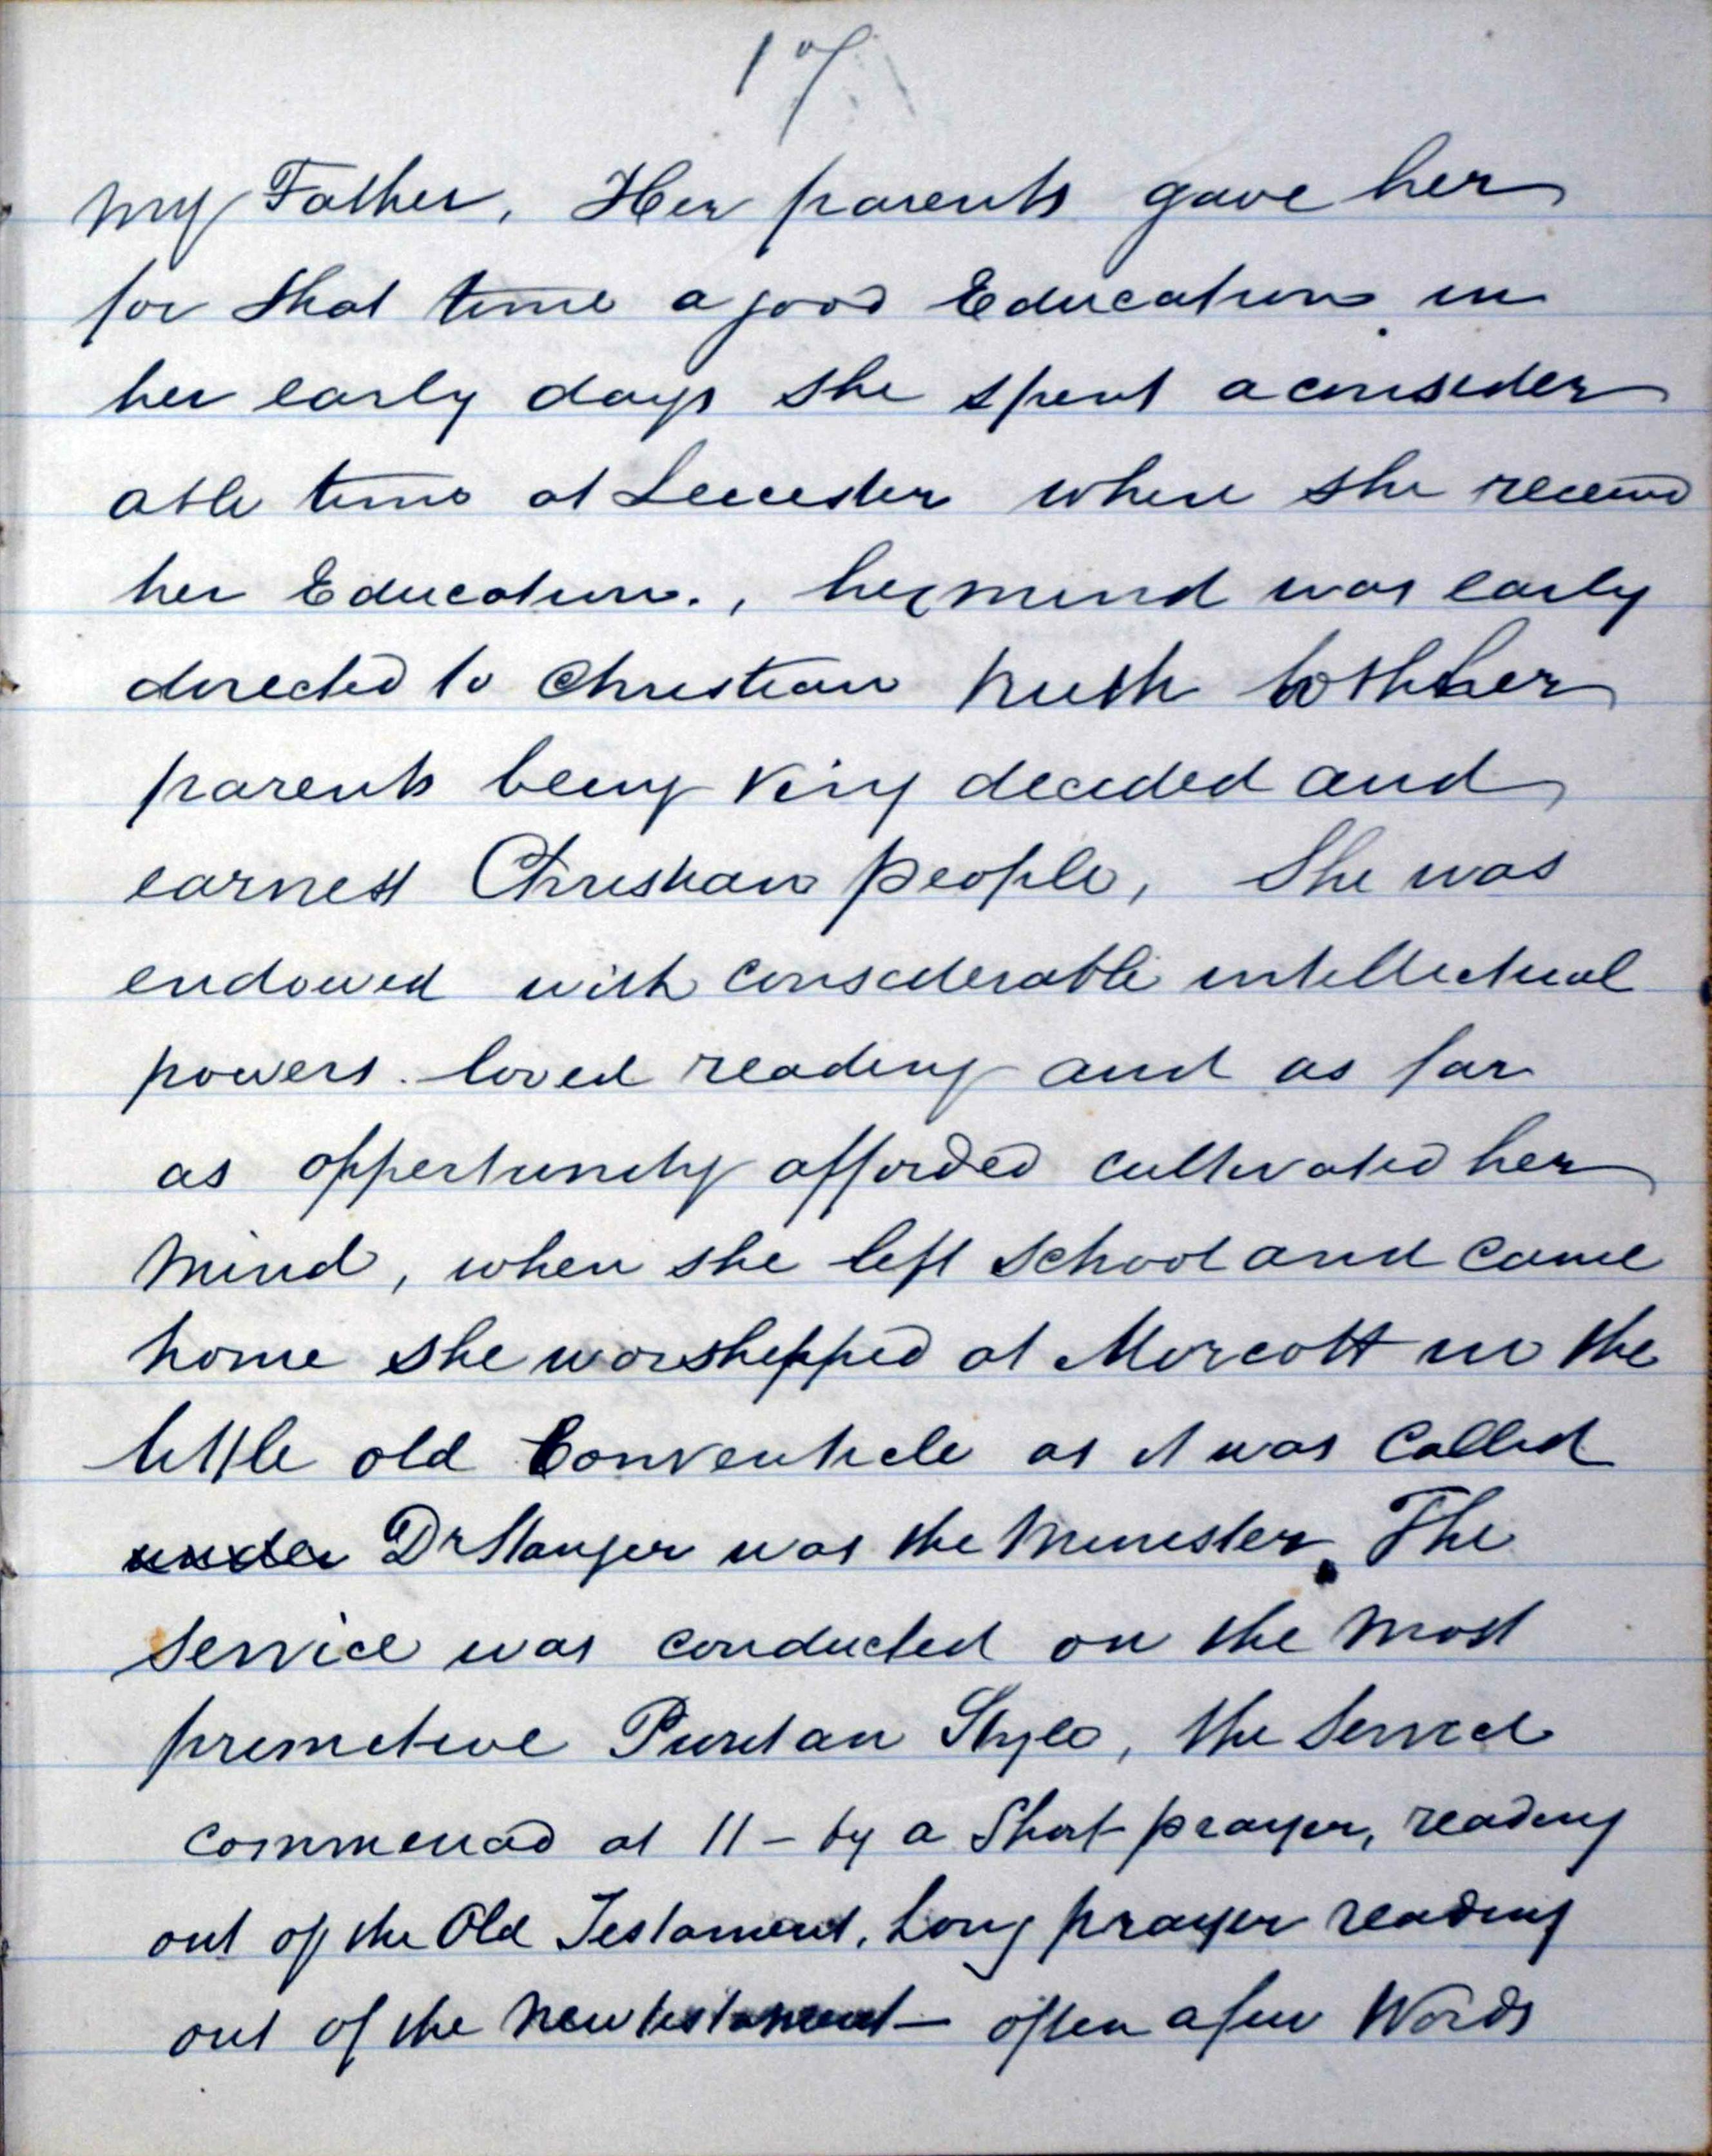 17
my Father, Her parents gave her
for that time a good Education in
her early days she spent a consider
able time at Leicester where she received
her Education., her mind was early
directed to Christian truth both her
parents being very decided and
earnest Christian people, She was
endowed with considerable intellectual
powers. loved reading and as far
as oppertunity afforded cultivated her
mind, when she left school and came
home she worshepped at Morcott in the
little old Conventicle as it was called
under Dr Stanger was the Minister. The
Service was conducted on the most
primetive Puretan Style, the Service
commenced at 11 - by a Short prayer, reading
out of the Old Testament, Long prayer reading
out of the New testament - often a few Words